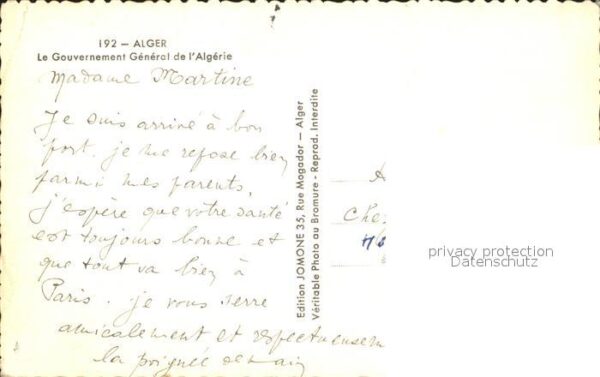 192 — ALGER
Le Gouvernement Général de l'Algérie
Madame Martine
Je suis arrivé à bon
port. je me repose bien
parmi mes parents,
j'espère que votre santé
est toujours bonne et
que tout va bien à
Paris. je vous serre
amicalement et respectueusem
la poignée de main
Edition JOMONE 35, Rue Mogador — Alger
Véritable Photo au Bromure - Reprod. Interdite
A
Che
privacy protection
Datenschutz